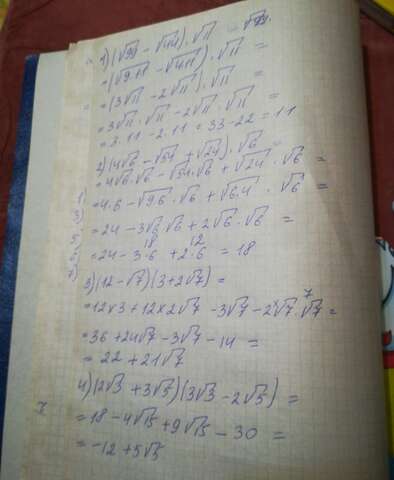 1) (√99 - √44) · √11 =
= (√9·11 - √4·11) · √11 =
= (3√11 - 2√11) · √11 =
= 3√11 · √11 - 2√11 · √11 =
= 3·11 - 2·11 = 33-22 = 11
2) (4√6 - √54 + √24) · √6 =
= 4√6·√6 - √54·√6 + √24 · √6 =
= 4·6 - √9·6 · √6 + √6·4 · √6 =
= 24 - 3√6·√6 + 2√6 · √6 =
18 12
= 24 - 3·6 + 2·6 = 18
3) (12-√7)(3+2√7) =
7
= 12×3 + 12×2√7 - 3√7 - 2√7·√7 =
= 36 + 24√7 - 3√7 - 14 =
= 22 + 21√7
4) (2√3 + 3√5)(3√3 - 2√5) =
= 18 - 4√15 + 9√15 - 30 =
= -12 + 5√5